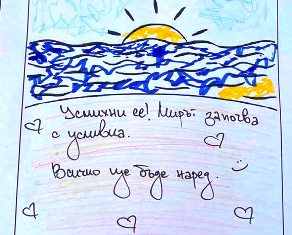 Усмихни се! Мирът започва
с усмивка.
Всичко ще бъде наред.